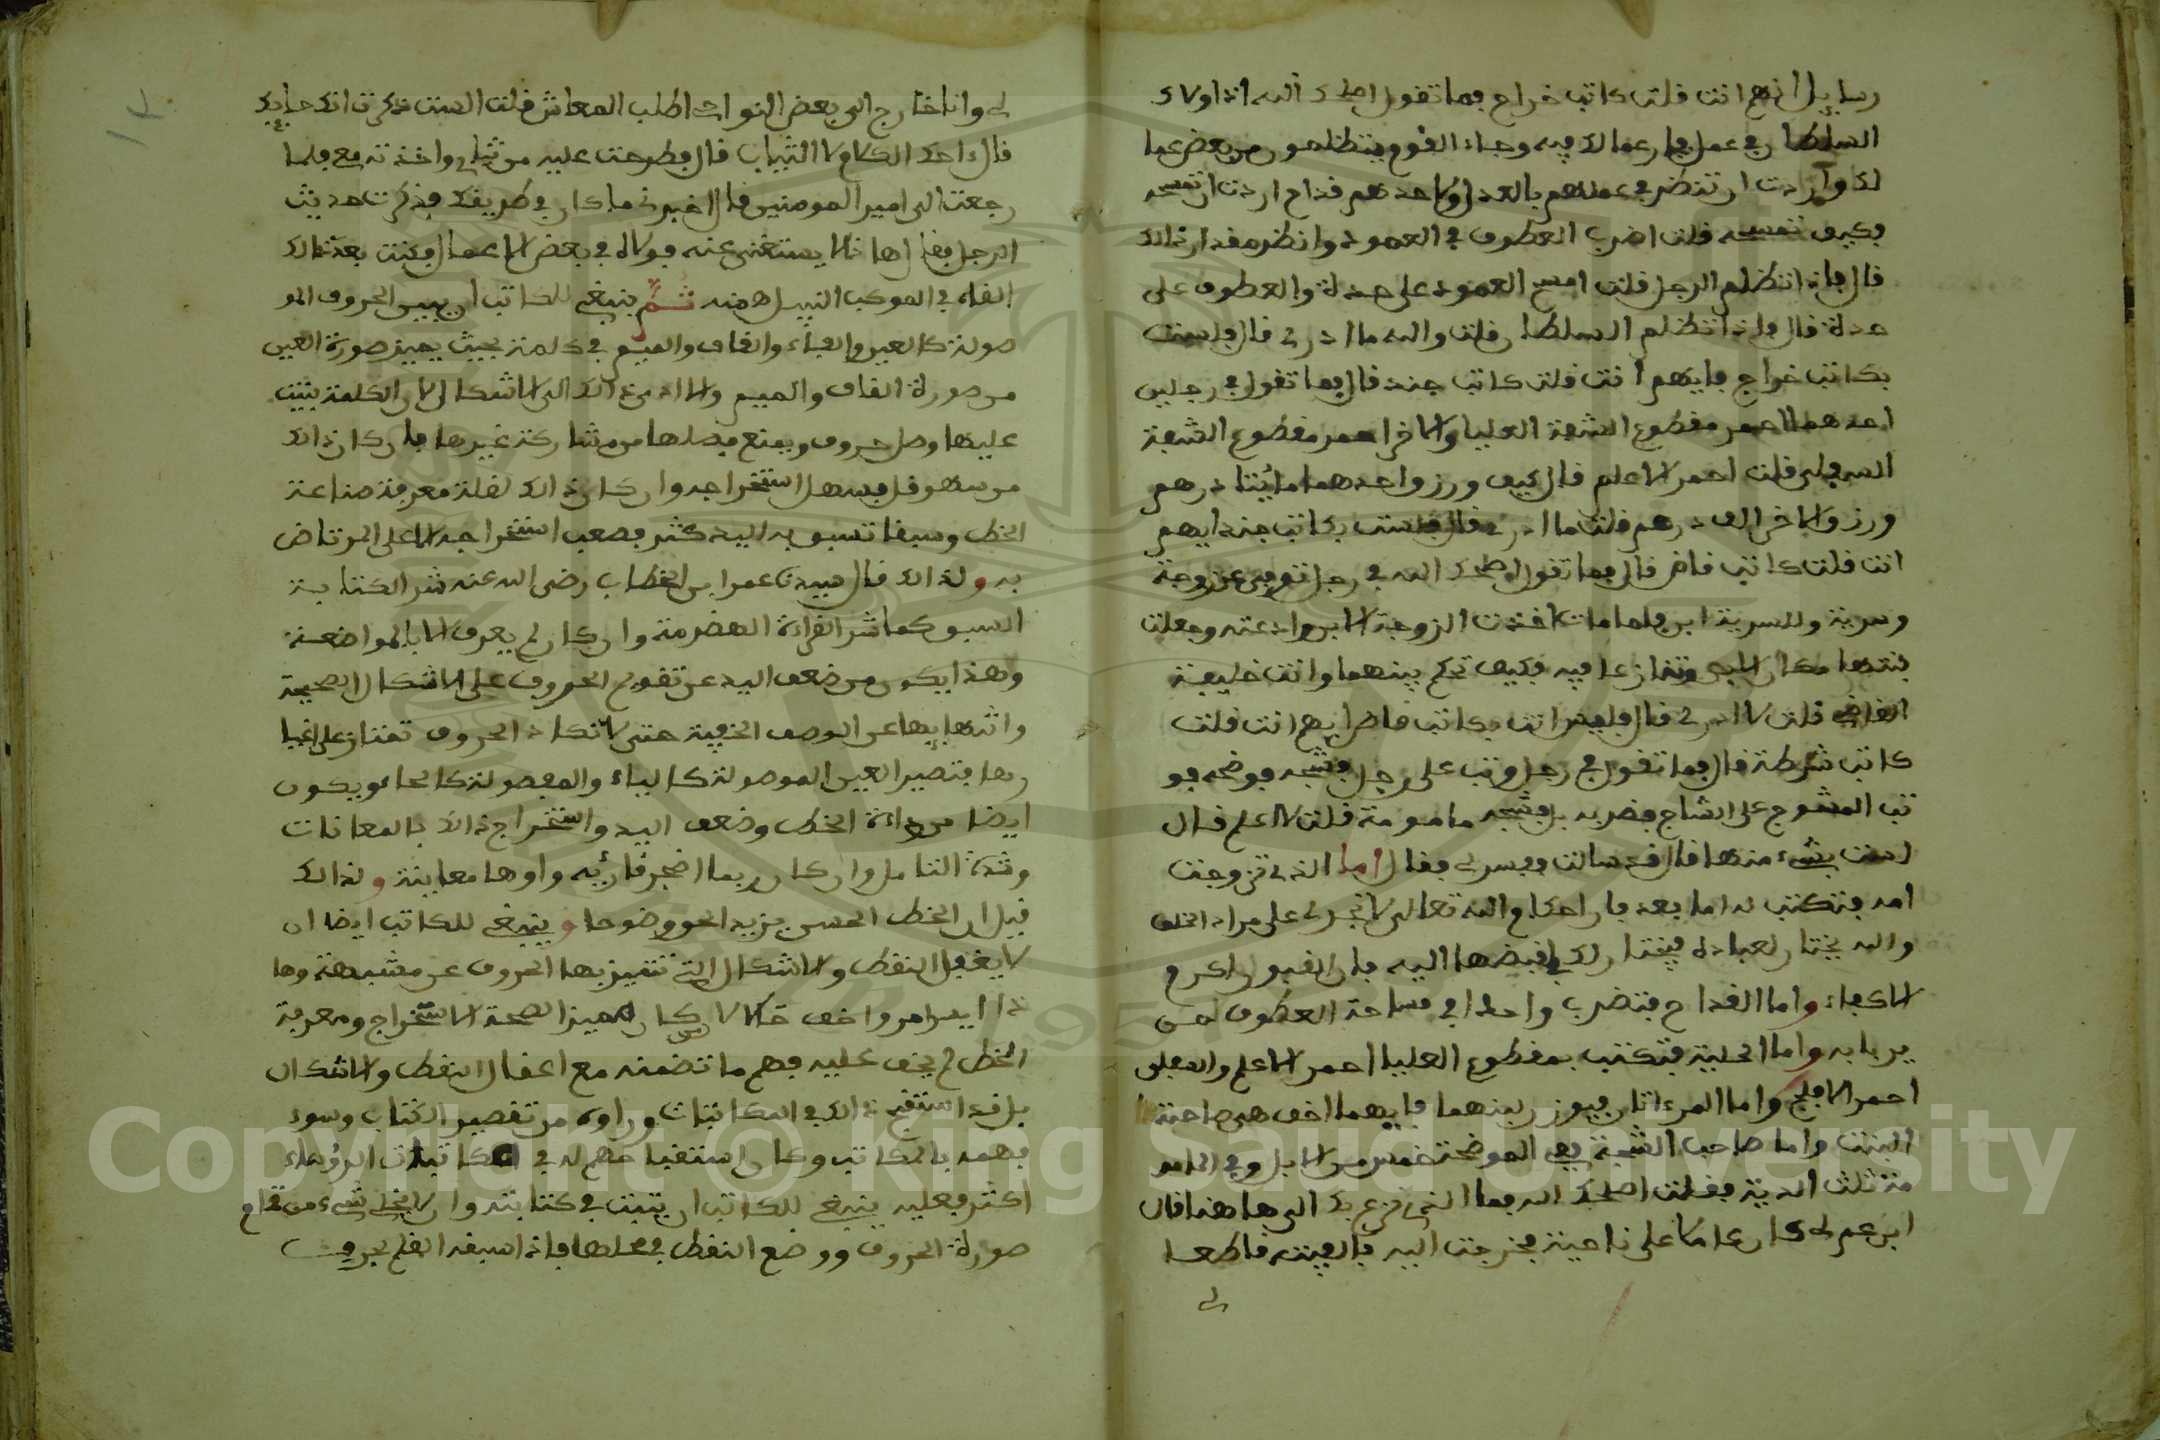 رسايل ايهم انت قلت كاتب خراج فما تقول اصلحك الله اذا ولاك
السلطان في عمل فان عمالك فيه وجاء القوم يتظلمون من بعض عما
لك واردت ان تنظر في عملهم بالعدل وكان احدهم قداح اردت ان تمسحه
فكيف تمسحه قلت اضرب العطوف في العمود وانظر مقدار ذالك
قال فاذا تظلم الرجل قلت امسح العمود على حدة والعطوف على
حدة قال فاذا تظلم السلطان قلت والله ما ادرى قال فلست
بكاتب خراج فايهم انت قلت كاتب جند قال فما تقول في رجلين
احدهما احمر مقطوع الشفة العليا والاخر احمر مقطوع الشفة
السفلى قلت احمر الاعلم قال كيف ورزق احدهما مائتا درهم
ورزق الاخر الف درهم قلت ما ادرى قال فلست بكاتب جند ايهم
انت قلت كاتب قاض قال فما تقول اصلحك الله في رجل توفي عن زوجة
وسرية وللسرية ابن فلما مات اخذت الزوجة الابن وادعته وجعلت
بنتها مكان الابن وتنازعا فيه فكيف تحكم بينهما وانت خليفة
القاضى قلت لا ادرى قال فليس انت بكاتب قاض ايهم انت قلت
كاتب شرطة قال فما تقول في رجل وثب على رجل فشجه موضحة فو
ثب المشجوج على الشاج فضربه بل فشجه مامومة قلت لا اعلم قال
لست بشىء منها قال قد سالت ففسر لى فقال اما الذى تزوجت
امه فتكتب له اما بعد فان احكام الله تعالى لا تجرى على مراد الخلق
والله يختار لعباده فيختار لك قبضها اليه فان القبور اكرم
الاكفاء واما القداح فتضرب واحدا في مساحة العطوف فمن
ير بابه واما الحلية فتكتب بمقطوع العليا احمر الاعلم والسفلى
احمر الافلج واما المرءاتان فيوزن لبنهما فايهما اخف هى صاحبة
البنت واما صاحب الشجة ففي الموضحة خمس من الابل وفي المامو
مة ثلث الدية فقلت اصلحك الله فما الذى نزع بك الى هاهنا قال
ابن عم لى كان عاملا على ناحية فخرجت اليه فالفيته قاطعا
لى
لى وانا خارج الى بعض النواحى اطلب المعاش قلت الست ذكرت انك حايك
قال احوك الكلام لا الثياب قال فطرحت عليه من ثيابى واخذته معى فلما
رجعت الى امير المومنين قال اخبرنى ما كان في طريقك فذكرت حديث
الرجل فقال هاذا لا يستغنى عنه فولاه في بعض الاعمال فكنت بعد ذالك
القاه في الموكب النبيل منه ثم ينبغى للكاتب ان يبين الحروف المو
صولة كالعين والفاء والقاف والميم في كلمة بحيث يميز صورة العين
من صورة القاف والميم والا ادى ذالك الى الاشكال لان الكلمة يثبت
عليها وصل حروف ويمنع فصلها من مشاركة غيرها فان كان ذالك
من سهو قل فسهل استخراجه وان كان ذالك لقلة معرفة صناعة
الخط وسبقا تسبق به اليد كثر فصعب استخراجه الا على المرتاض
به ولذالك قال سيدنا عمر ابن الخطاب رضى الله عنه شر الكتابة
السبق كما شر القراءة الهذرمة وان كان لم يعرف الا بالمواضعة
وهذا يكون من ضعف اليد عن تقويم الحروف على الاشكال الصحيحة
واثباتها عن الوصف الخفية حتى لا تكاد الحروف تمتاز على اغيا
رها فتصير العين الموصولة كالباء والمفصولة كالحاء ويكون
ايضا من رداءة الخط وضعف اليد واستخراج ذالك بالمعانات
وشدة التامل وان كان ربما اضجر قارئه واوها معاينة ولذالك
قيل ان الخط الحسن يزيد الحق وضوحا وينبغى للكاتب ايضا ان
لا يغفل النقط والاشكال التى تتميز بها الحروف عن مشبهة وها
ذا ايسر امر واخف حالا لان من كان مميزا لصحة الاستخراج ومعرفة
الخط لم يخف عليه فهم ما تضمنه مع اغفال النقط والاشكال
بل قد استقبح ذالك في المكاتبات وراوه من تقصير الكتاب وسوء
فهمه بالكاتب وكان استقباحهم له في مكاتبات الرؤساء
اكثر فعليه ينبغى للكاتب ان يتثبت في كتابته وان لا يخلى شىء من تمام
صورة الحروف ووضع النقط في محلها فاذا سبقه القلم بحرف